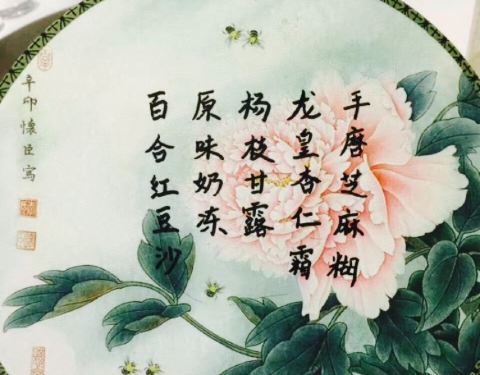 手磨芝麻糊
龙皇杏仁霜
杨枝甘露
原味奶冻
百合红豆沙
辛卯懷臣寫